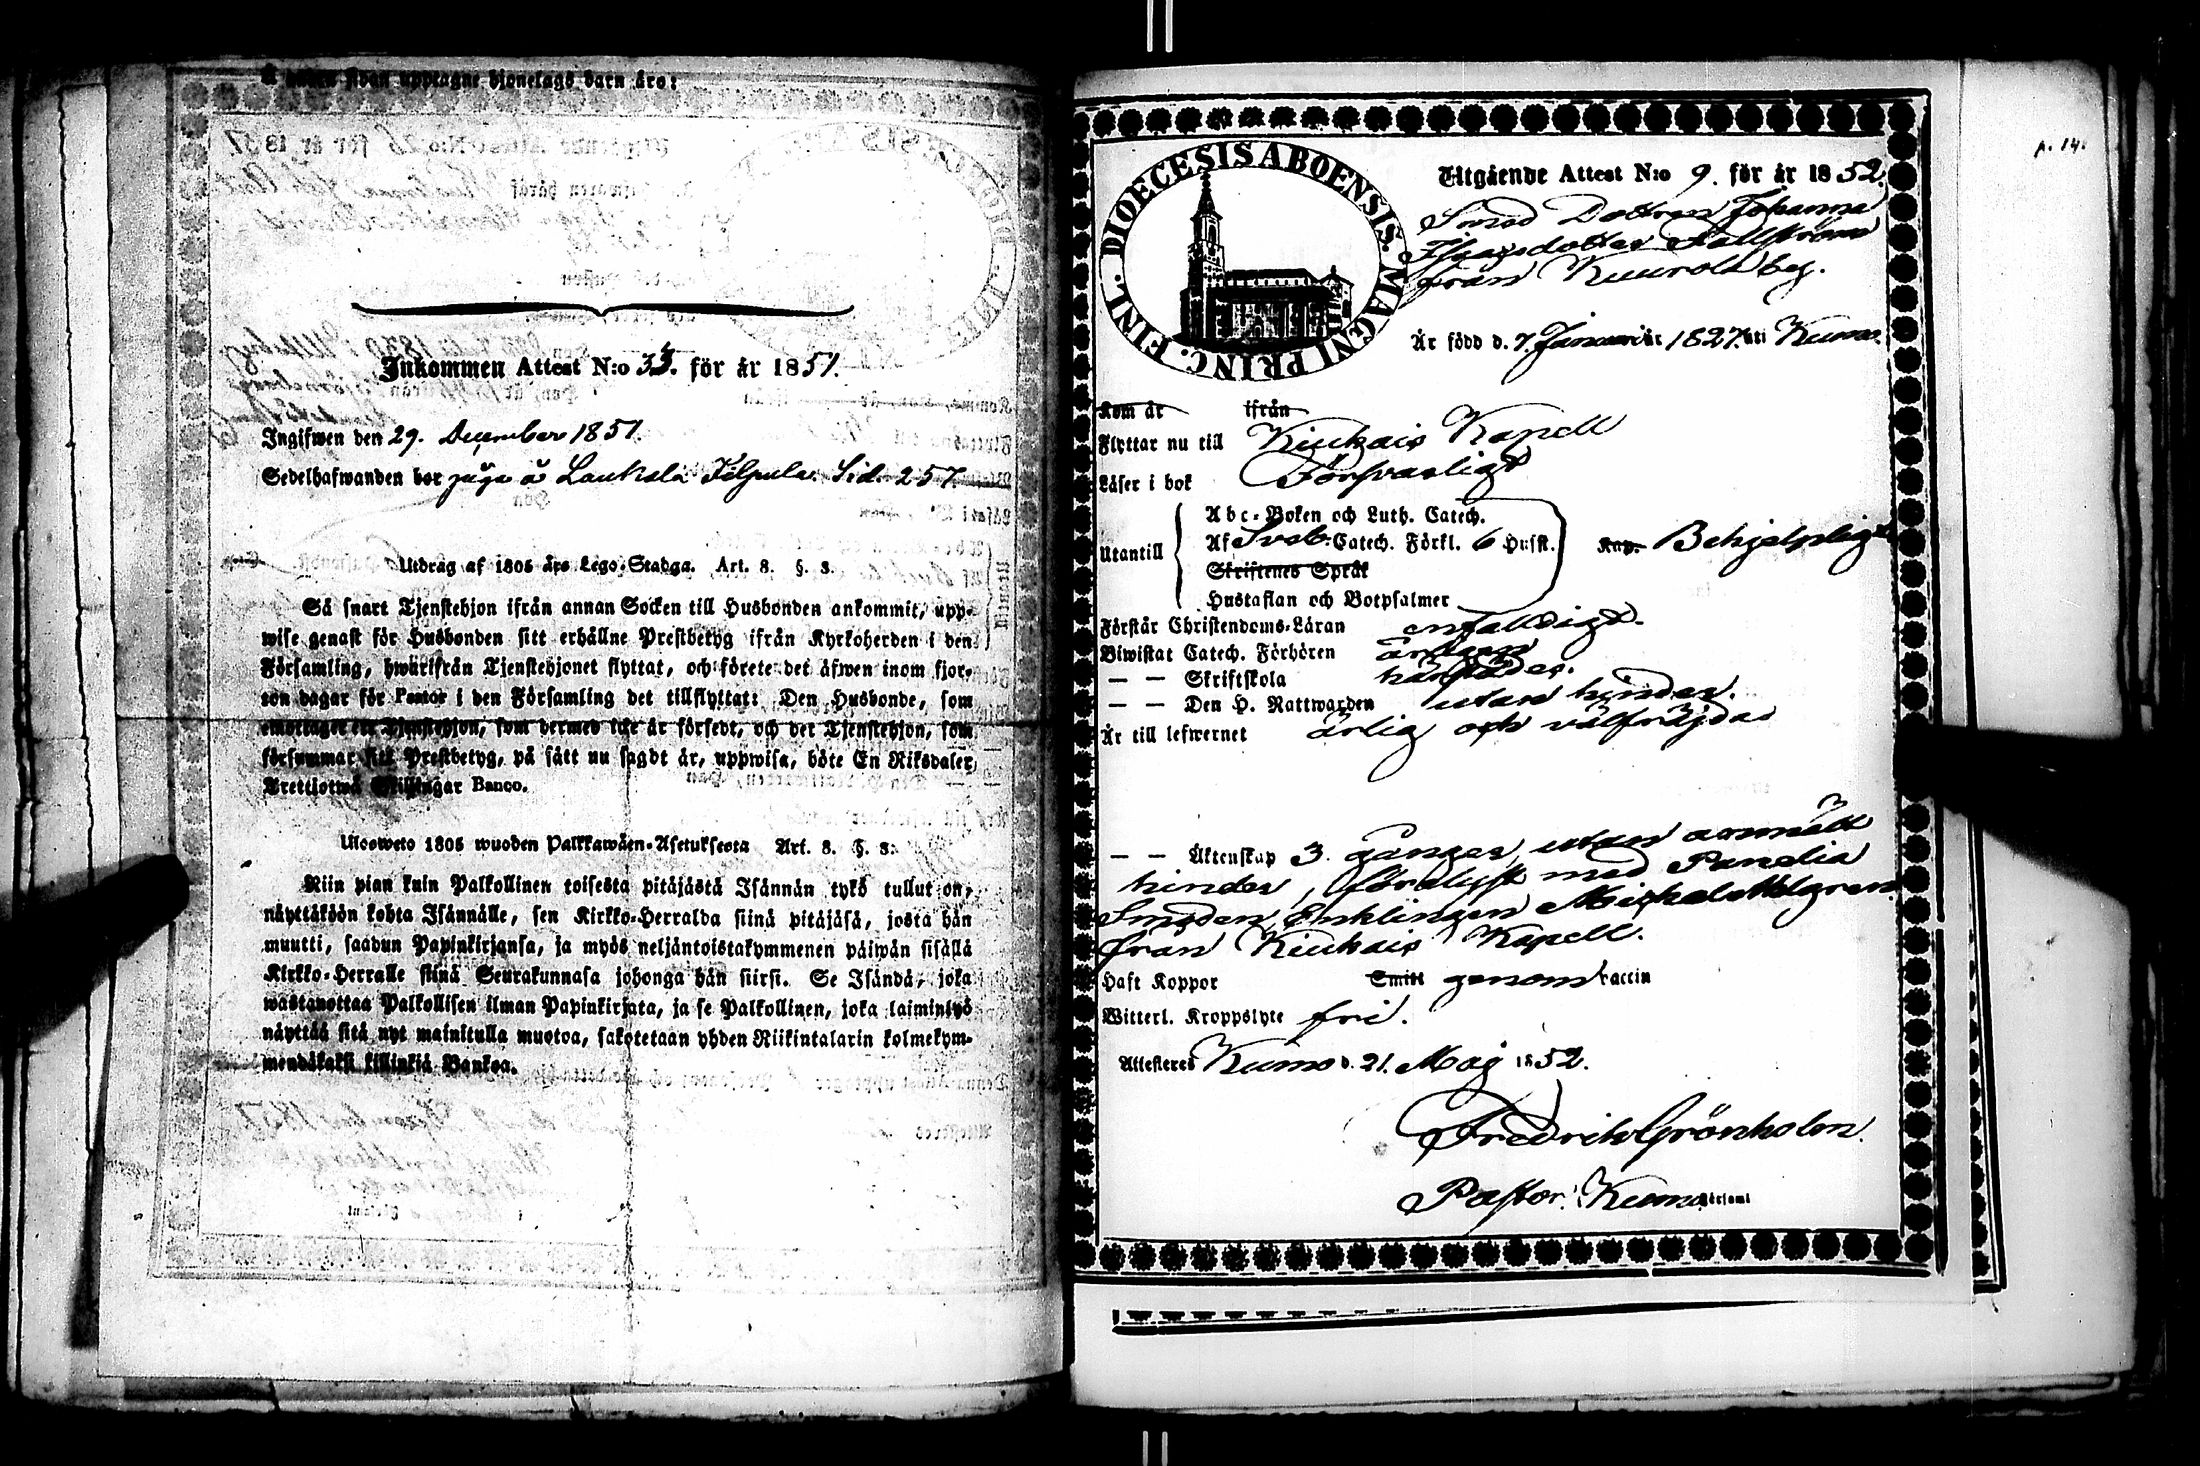 å sidan upptagne hjonelags barn äro:
Inkommen Attest N:o 33. för år 1851.
Ingifwen den 29. December 1851.
Sedelhafwanden bor piga å Laukola Kilpula. Sid. 257.
Utdrag af 1805 års Lego-Stadga. Art. 8. §. 3.
Så snart Tjenstehjon ifrån annan Socken till Husbonden ankommit, upp-
wise genast för Husbonden sitt erhållne Prestbetyg ifrån Kyrkoherden i den
Församling, hwarifrån Tjenstehjonet flyttat, och förete det äfwen inom fjor-
ton dagar för Pastor i den Församling det tillflyttat: Den Husbonde, som
emottager ett Tjenstehjon, som dermed icke är försedt, och det Tjenstehjon, som
försummar sitt Prestbetyg, på sätt nu sagdt är, uppwisa, böte En Riksdaler
Trettiotwå Skillingar Banco.
Ulosweto 1805 wuoden Palkkawäen-Asetuksesta Art. 8. §. 3.
Niin pian kuin Palkollinen toisesta pitäjästä Isännän tykö tullut on,
näyttäköön kohta Isännälle, sen Kirkko-Herralda siinä pitäjäsä, josta hän
muutti, saadun Papinkirjansa, ja myös neljäntoistakymmenen päiwän sisällä
Kirkko-Herralle siinä Seurakunnasa johonga hän siirsi. Se Isändä, joka
wastanottaa Palkollisen ilman Papinkirjata, ja se Palkollinen, joka laiminlyö
näyttää sitä nyt mainitulla muotoa, sakotetaan yhden Riikintalarin kolmekym-
mendäkaksi killinkiä Bankoa.
DIOECESIS ABOENSIS. MAGNI PRINC. FINL.
Utgående Attest N:o 9. för år 1852.
Smed Dottren Johanna
Isaksdotter Fallström
från Kuurola by.
Är född d. 7. Januarii år 1827. uti Kumo.
Kom år ifrån
Flyttar nu till Kiukais Kapell
Läser i bok Försvarligt
Utantill
Abc-Boken och Luth. Catech.
Af Sveb. Catech. Förkl. 6 Husst. Kap. Behjelpligt
Skriftenes Språk
Hustaflan och Botpsalmer
Förstår Christendoms-Läran enfaldigt.
Biwistat Catech. Förhören årligen
— — Skriftskola härstädes.
— — Den H. Nattwarden utan hinder.
Är till lefwernet ärlig och välfräjdad
— — Äktenskap 3 gånger, utan anmäldt
hinder, förelyst med Panelia
Smeden, Enklingen Michel Malgren
från Kiukais Kapell.
Haft Koppor Smitt genom vaccin
Witterl. Kroppslyte fri.
Attesteres Kumo d. 21. Maj 1852.
Fredrik Grönholm
Pastor i Kumo Församl
p. 14.